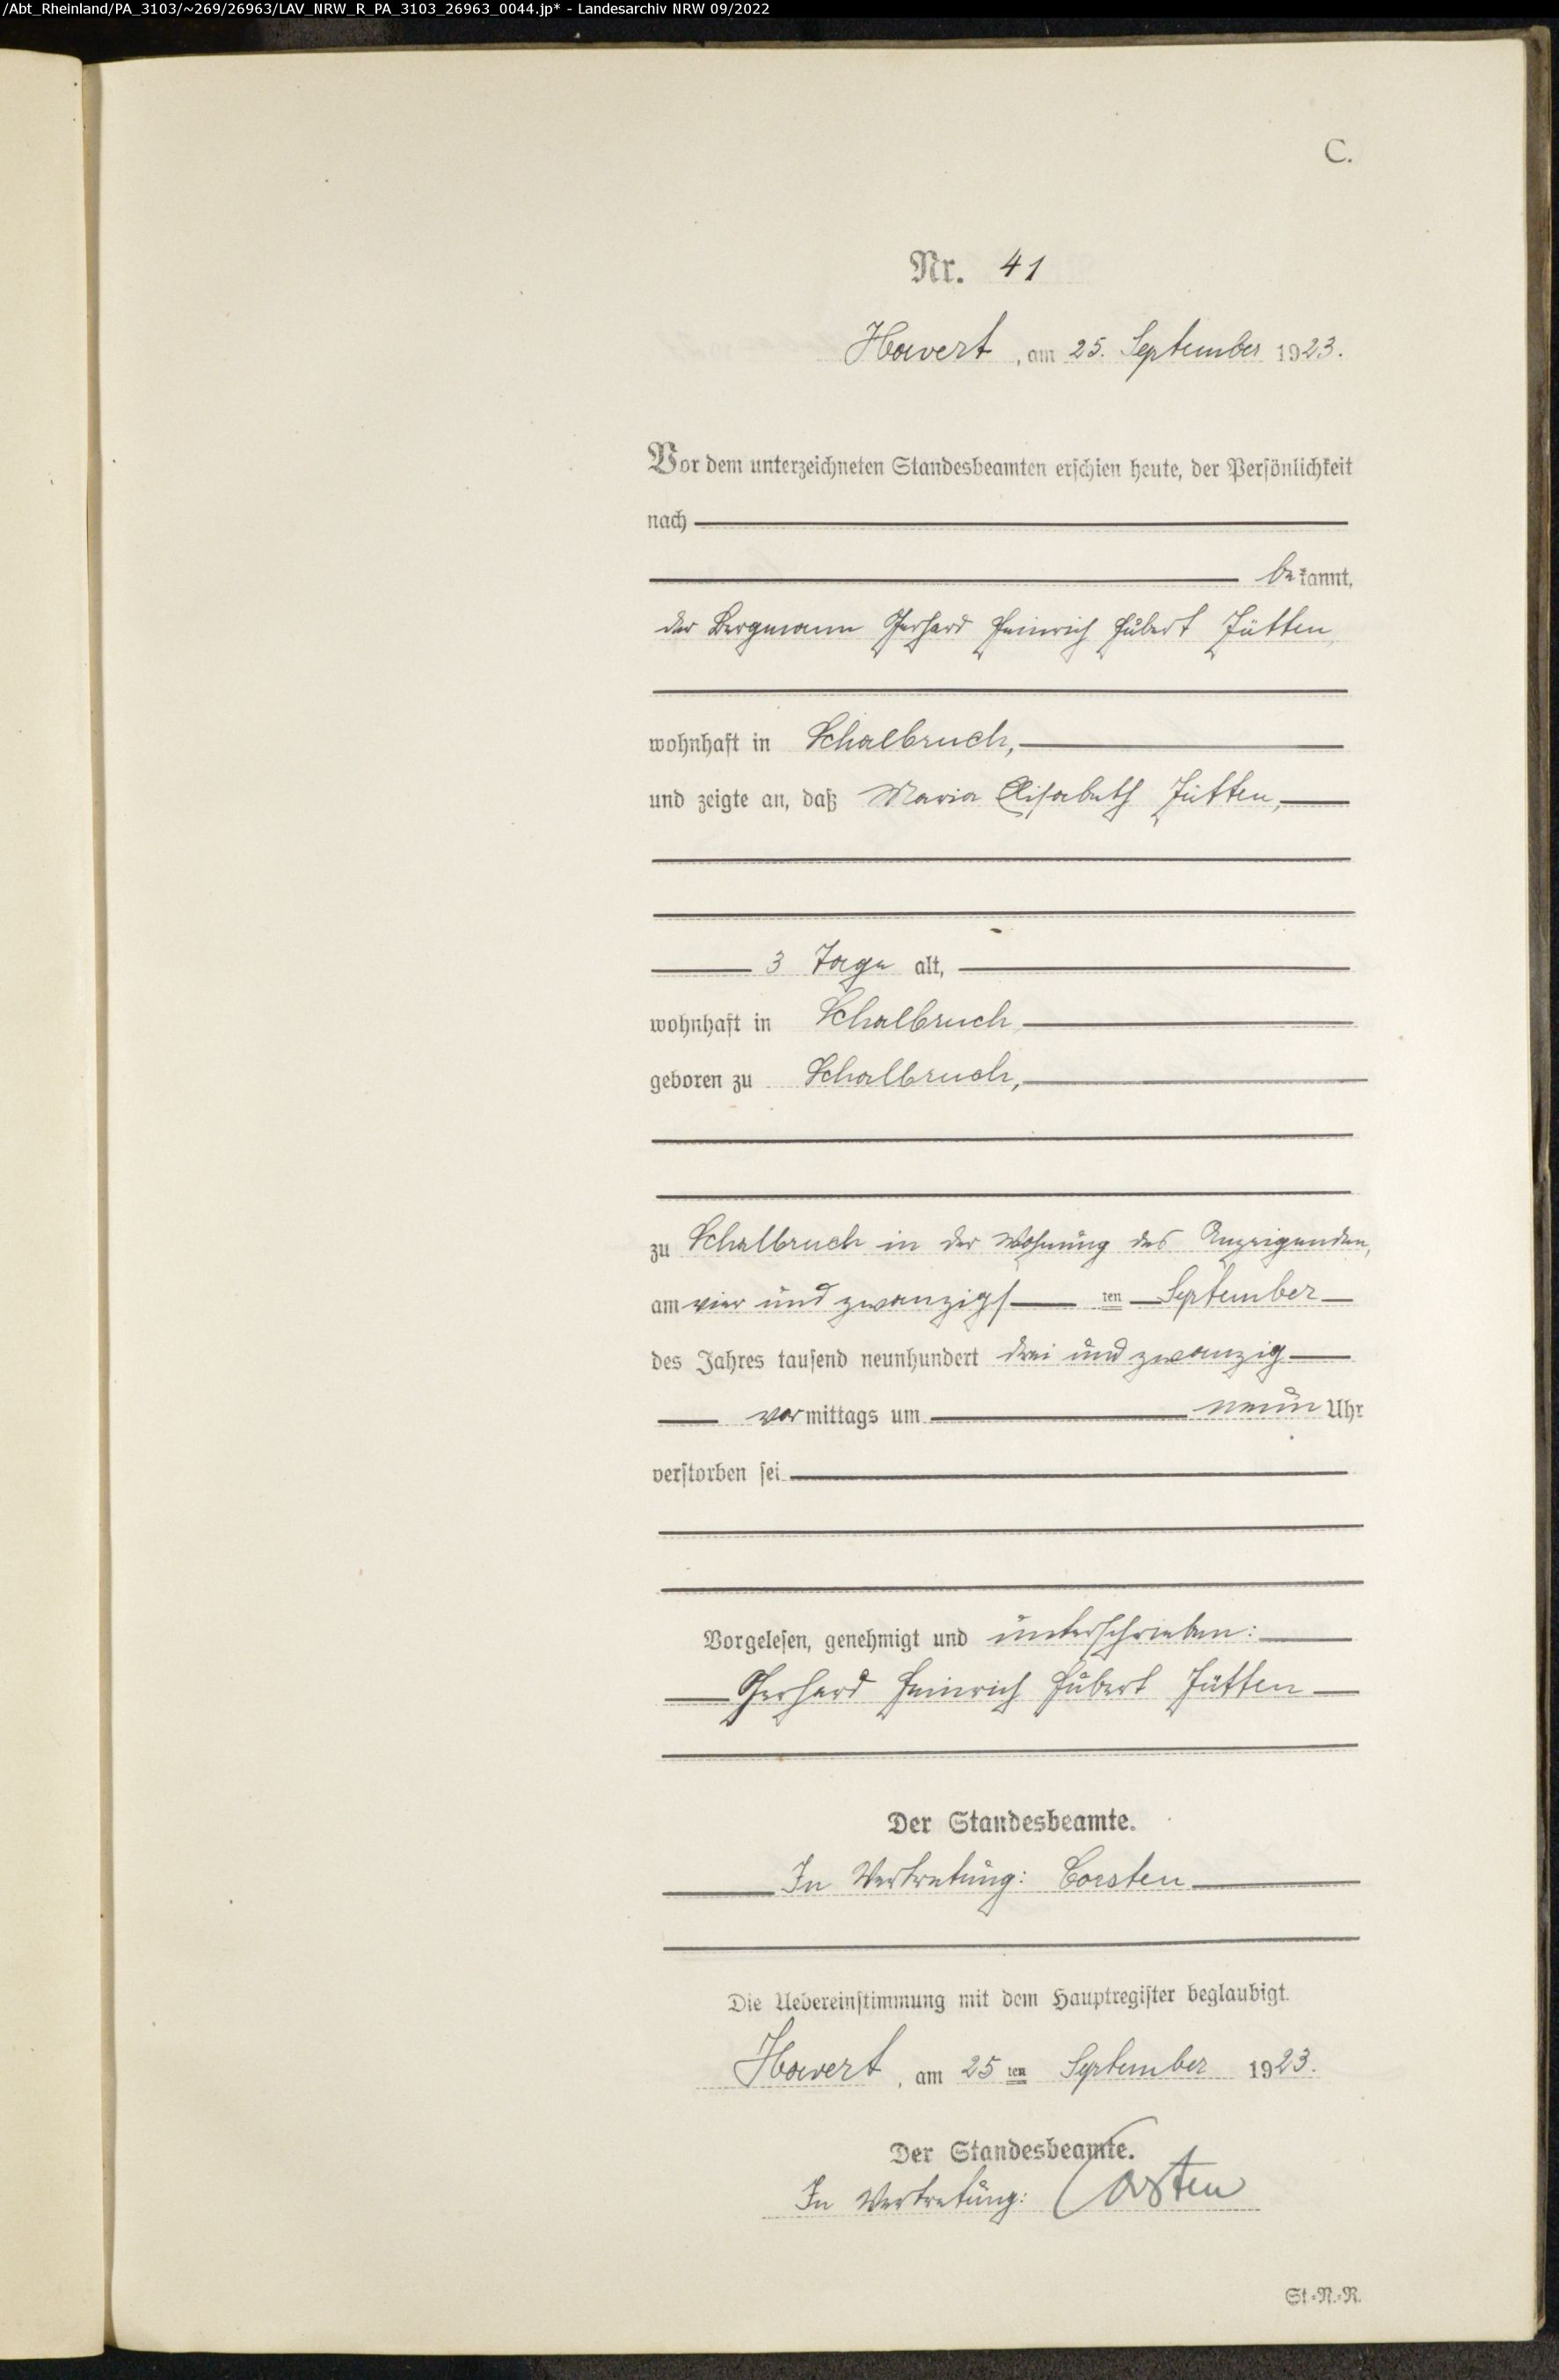 /Abt_Rheinland/PA_3103/~269/26963/LAV_NRW_R_PA_3103_26963_0044.jp* - Landesarchiv NRW 09/2022
C.
Nr. 41
Havert, am 25. September 1923.
Vor dem unterzeichneten Standesbeamten erschien heute, der Persönlichkeit
nach
bekannt,
der Bergmann Gerhard Heinrich Hubert Jütten,
wohnhaft in Schalbruch,
und zeigte an, daß Maria Elisabeth Jütten,
3 Tage alt,
wohnhaft in Schalbruch
geboren zu Schalbruch,
zu Schalbruch in der Wohnung des Anzeigenden,
am vier und zwanzigsten September
des Jahres tausend neunhundert drei und zwanzig
vormittags um neun Uhr
verstorben sei
Vorgelesen, genehmigt und unterschrieben:
Gerhard Heinrich Hubert Jütten
Der Standesbeamte.
In Vertretung: Corsten
Die Uebereinstimmung mit dem Hauptregister beglaubigt.
Havert, am 25ten September 1923.
Der Standesbeamte.
In Vertretung: Corsten
St.-N.-R.